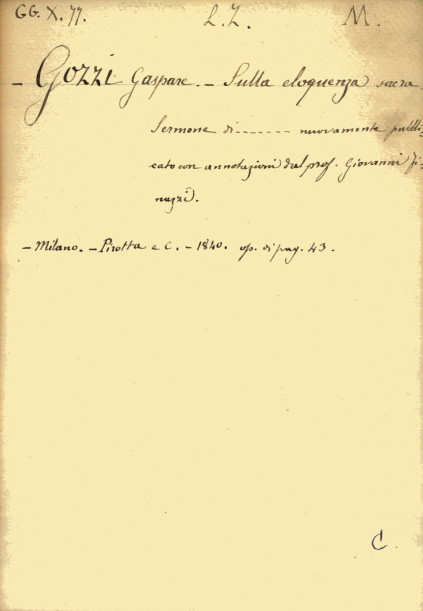 GG. X. 77. L. Z. M.
- Gozzi Gaspare. - Sulla eloquenza sacra.
Sermone di ------- nuovamente pubbli-
cato con annotazioni dal prof. Giovanni Fi-
nazzi.
- Milano. - Pirotta e C. - 1840. op. di pag. 43.
C.